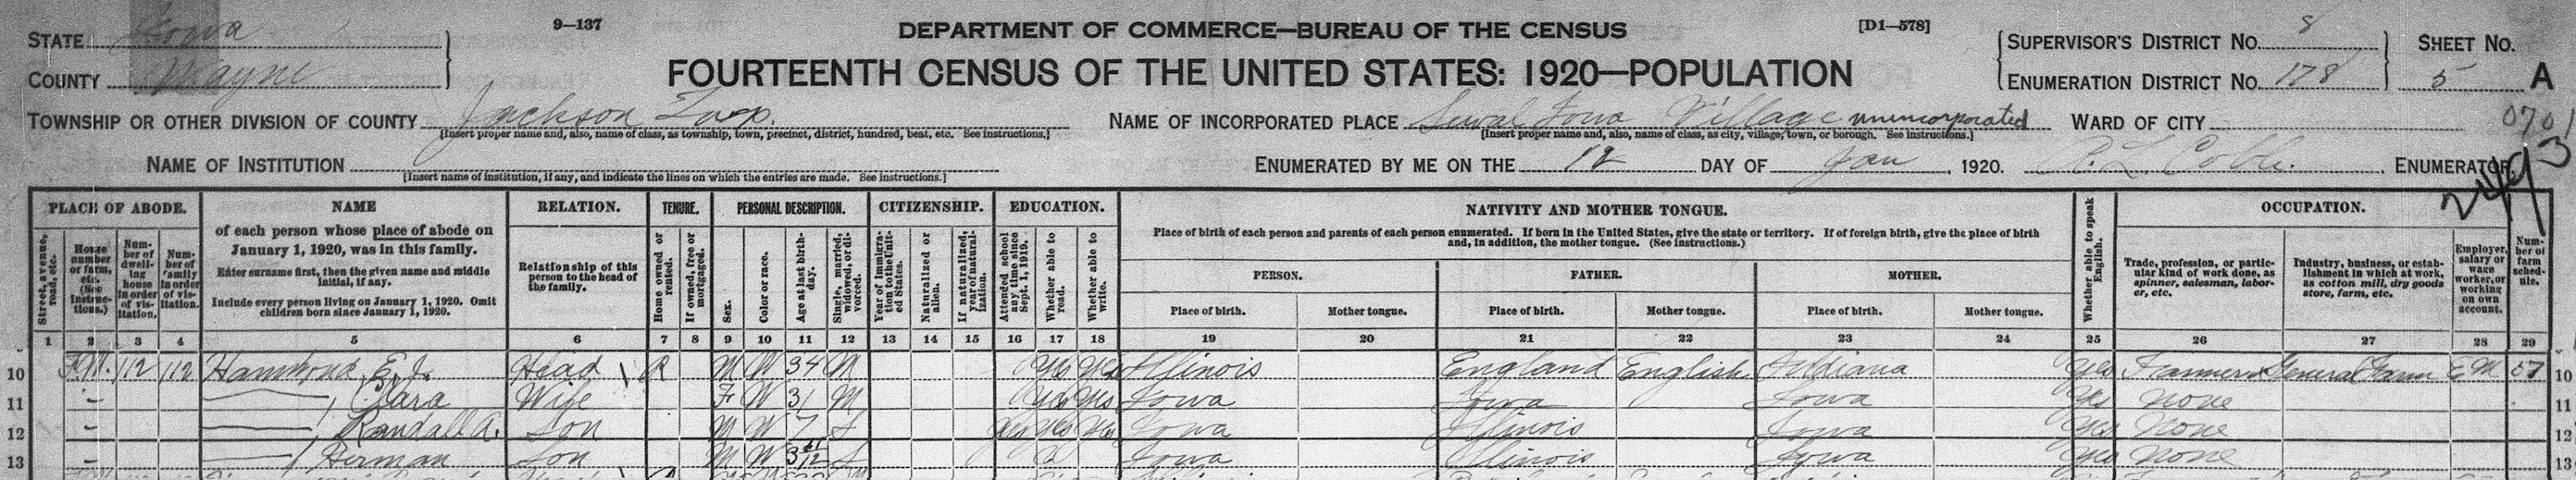 9—137
DEPARTMENT OF COMMERCE—BUREAU OF THE CENSUS
[D1—578]
STATE Iowa
COUNTY Wayne
FOURTEENTH CENSUS OF THE UNITED STATES: 1920—POPULATION
SUPERVISOR'S DISTRICT No. 8
ENUMERATION DISTRICT No. 178
SHEET No.
5 A
TOWNSHIP OR OTHER DIVISION OF COUNTY Jackson Twp.
[Insert proper name and, also, name of class, as township, town, precinct, district, hundred, beat, etc. See instructions.]
NAME OF INCORPORATED PLACE Sewal Iowa Village unincorporated
[Insert proper name and, also, name of class, as city, village, town, or borough. See instructions.]
WARD OF CITY
070
NAME OF INSTITUTION
[Insert name of institution, if any, and indicate the lines on which the entries are made. See instructions.]
ENUMERATED BY ME ON THE 12 DAY OF Jan, 1920. ENUMERATOR.
PLACE OF ABODE.
Street, avenue, road, etc.
House number or farm, etc. (See instructions.)
Number of dwelling house in order of visitation.
Number of family in order of visitation.
NAME
of each person whose place of abode on
January 1, 1920, was in this family.
Enter surname first, then the given name and middle
initial, if any.
Include every person living on January 1, 1920. Omit
children born since January 1, 1920.
RELATION.
Relationship of this
person to the head of
the family.
TENURE.
Home owned or rented.
If owned, free or mortgaged.
PERSONAL DESCRIPTION.
Sex.
Color or race.
Age at last birthday.
Single, married, widowed, or divorced.
CITIZENSHIP.
Year of immigration to the United States.
Naturalized or alien.
If naturalized, year of naturalization.
EDUCATION.
Attended school any time since Sept. 1, 1919.
Whether able to read.
Whether able to write.
NATIVITY AND MOTHER TONGUE.
Place of birth of each person and parents of each person enumerated. If born in the United States, give the state or territory. If of foreign birth, give the place of birth
and, in addition, the mother tongue. (See instructions.)
PERSON. FATHER. MOTHER.
Place of birth. Mother tongue. Place of birth. Mother tongue. Place of birth. Mother tongue.
Whether able to speak English.
OCCUPATION.
Trade, profession, or particular kind of work done, as spinner, salesman, laborer, etc.
Industry, business, or establishment in which at work, as cotton mill, dry goods store, farm, etc.
Employer, salary or wage worker, or working on own account.
Number of farm schedule.
1 2 3 4 5 6 7 8 9 10 11 12 13 14 15 16 17 18 19 20 21 22 23 24 25 26 27 28 29
10 F.M. 112 112 Hammond, E. J. Head R M W 34 M Yes Yes Illinois England English Indiana Yes Farmer General Farm EM 57 10
11 — , Clara Wife F W 31 M Yes Yes Iowa Iowa Iowa Yes None 11
12 — , Randall A. Son M W 7 S Yes Yes Yes Iowa Illinois Iowa Yes None 12
13 — , Herman Son M W 3 S Iowa Illinois Iowa Yes None 13